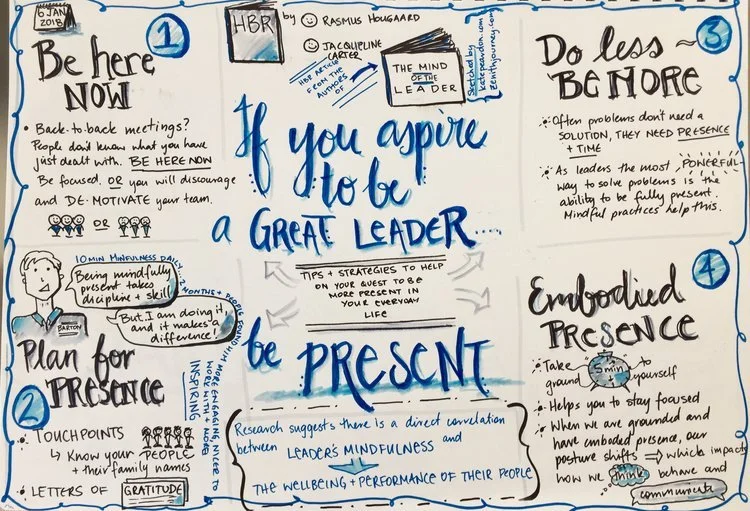 6 JAN
2018
1
Be here
NOW
Back-to-back meetings?
People don't know what you have
just dealt with. BE HERE NOW
Be focused OR you will discourage
and DE-MOTIVATE your team.
OR
HBR
by
RASMUS HOUGAARD
JACQUELINE
CARTER
HBR ARTICLE
FROM THE
AUTHORS
OF
THE MIND
OF THE
LEADER
Sketched by
katepeardon.com
zenithjourney.com
If you aspire
to be
a GREAT LEADER....
TIPS + STRATEGIES TO HELP
ON YOUR QUEST TO BE
MORE PRESENT IN
YOUR EVERYDAY
LIFE
be PRESENT
Research suggests there is a direct correlation
between LEADER'S MINDFULNESS and
THE WELLBEING + PERFORMANCE OF THEIR PEOPLE
10 MIN MINFULNESS DAILY, 2 MONTHS + PEOPLE FOUND HIM
MORE ENGAGING, NICER TO
WORK WITH + MORE
INSPIRING
Being mindfully
present takes
discipline + skill
But I am doing it,
and it makes a
difference!
BARTON
Plan for
PRESENCE
2
TOUCHPOINTS
Know your PEOPLE
+ their family names
LETTERS OF GRATITUDE
3
Do less ~
BE MORE
Often problems don't need a
SOLUTION, THEY NEED PRESENCE
+ TIME
As leaders the most POWERFUL
way to solve problems is the
ability to be fully present.
Mindful practices help this.
4
Embodied
PRESENCE
Take 5 min to
ground + yourself
Helps you to stay focused
When we are grounded and
have emboded presence, our
posture shifts which impacts
how we think behave and
communicate